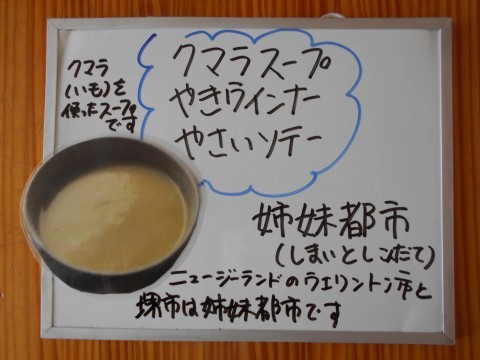 クマラ
(いも)を
使ったスープ
です
クマラスープ
やきウインナー
やさいソテー
姉妹都市
(しまいとしこんだて)
ニュージーランドのウエリントン市と
堺市は姉妹都市です